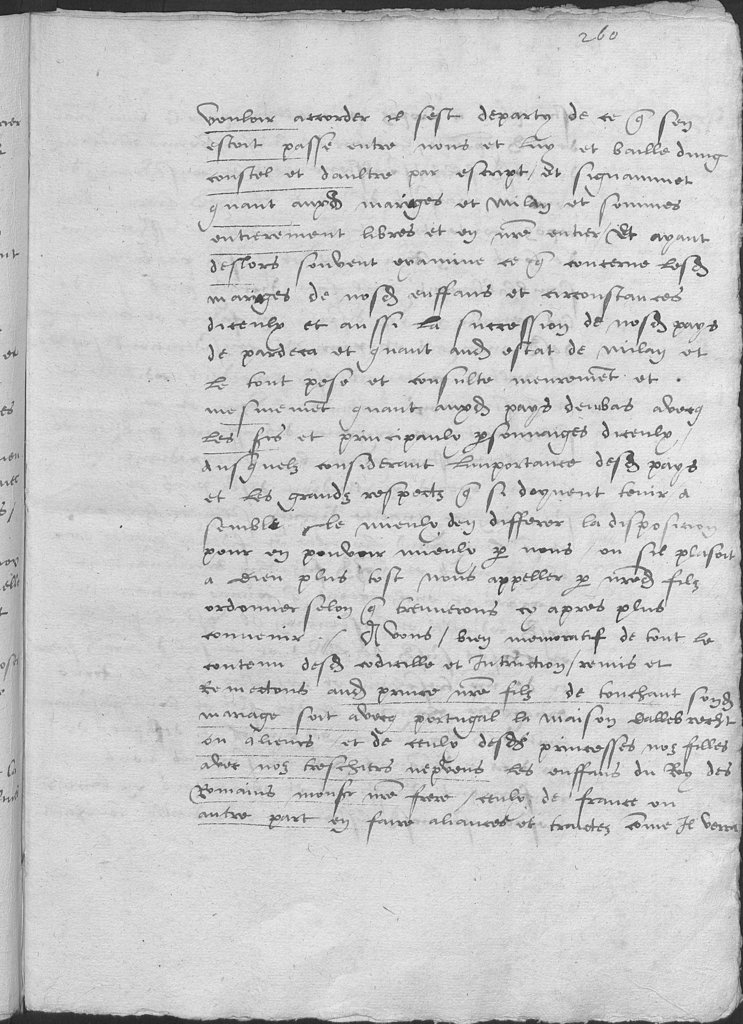 260
vouloir accorder il sest departy de ce q̃ sen
estoit passe entre nous et luy et baille dung
coustel et daultre par escript / Et signamment
quant auxd mariges et milan et sommes
entierement libres et en nre entier Et ayant
deslors souvent examine ce q̃ concerne lesd
mariges de nosd enffans et circonstances
diceulx et aussi la succession de nosd pays
de pardeca et quant aud estat de milan et
le tout pese et consulte meurement et
mesmement quant auxd pays denbas avecq
les et principaulx psonnaiges diceulx /
Ausquelz considerant limportance desd pays
et les grandz respectz q̃ si doyvent tenir a
semble le mieulx den differer la disposicion
pour en pouvoir mieulx p nous / ou sil plasoit
a dieu plus tost nous appeller p nred filz
ordonner selon q̃ treuverons cy apres plus
convenir . / Et vous / bien memoratif de tout le
contenu desd codicille et Intruction / remis et
Remectons aud prince nre filz de touchant sond
mariage soit avecq portugal la maison dallebrecht
ou alieurs et de ceulx desd princesses noz filles
avec noz treschiers nepveus les enffans du Roy des
Romains monsr nre frere / ceulx de france ou
autre part en faire aliances et traictez cõme Il verra